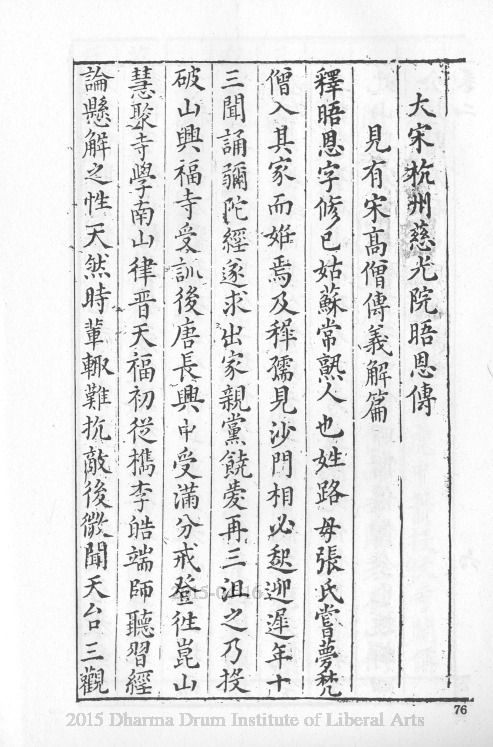 大宋杭州慈光院晤恩傳
見有宋高僧傳義解篇
釋晤恩字修已姑蘇常熟人也姓路母張氏嘗夢梵
僧入其家而姙焉及稺孺見沙門相必起迎遲年十
三聞誦彌陀經遂求出家親黨饒愛再三沮之乃投
破山興福寺受訓後唐長興中受滿分戒登徃崑山
慧聚寺學南山律晋天福初從檇李皓端師聽習經
論懸解之性天然時輩輙難抗敵後微聞天台三觀
76
2015 Dharma Drum Institute of Liberal Arts